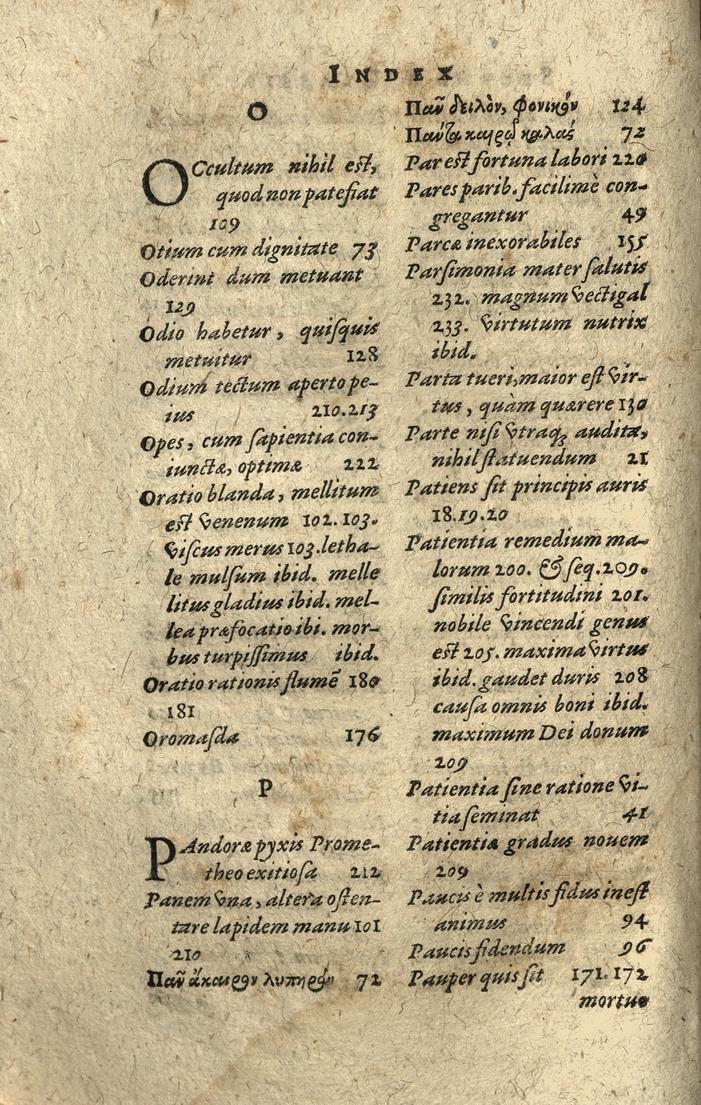 INDEX
O
OCcultum nihil est,
quod non patefiat
109
Otium cum dignitate 73
Oderint dum metuant
129
Odio habetur, quiſquis
metuitur 128
Odium tectum aperto pe-
ius 210.213
Opes, cum ſapientia con-
iunctæ, optimæ 222
Oratio blanda, mellitum
est venenum 102.103.
viſcus merus 103. letha-
le mulſum ibid. melle
litus gladius ibid. mel-
lea præfocatio ibi. mor-
bus turpiſſimus ibid.
Oratio rationis flumẽ 180
181
Oromaſda 176
P
PAndoræ pyxis Prome-
theo exitioſa 212
Panem vna, altera oſten-
tare lapidem manu 101
210
Πᾶν ἄκαιρον λυπηρόν 72
Πᾶν δειλὸν, φονικόν 124
Πάντα καιρῷ καλά 72
Par est fortuna labori 220
Pares parib. facilimè con-
gregantur 49
Parcæ inexorabiles 155
Parſimonia mater ſalutis
232. magnum vectigal
233. virtutum nutrix
ibid.
Parta tueri, maior eſt vir-
tus, quàm quærere 130
Parte niſi vtraq; audita,
nihil ſtatuendum 21
Patiens ſit principis auris
18.19.20
Patientia remedium ma-
lorum 200. & ſeq. 209.
ſimilis fortitudini 201.
nobile vincendi genus
est 205. maxima virtus
ibid. gaudet duris 208
cauſa omnis boni ibid.
maximum Dei donum
209
Patientia ſine ratione vi-
tia ſeminat 41
Patientiæ gradus nouem
209
Paucis è multis fidus ineſt
animus 94
Paucis fidendum 96
Pauper quis ſit 171.172
mortuo